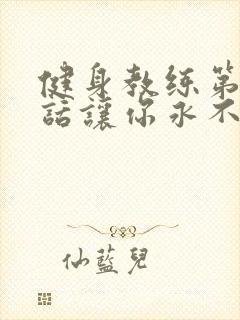 健身教练第
話讓你永不
仙藍兒